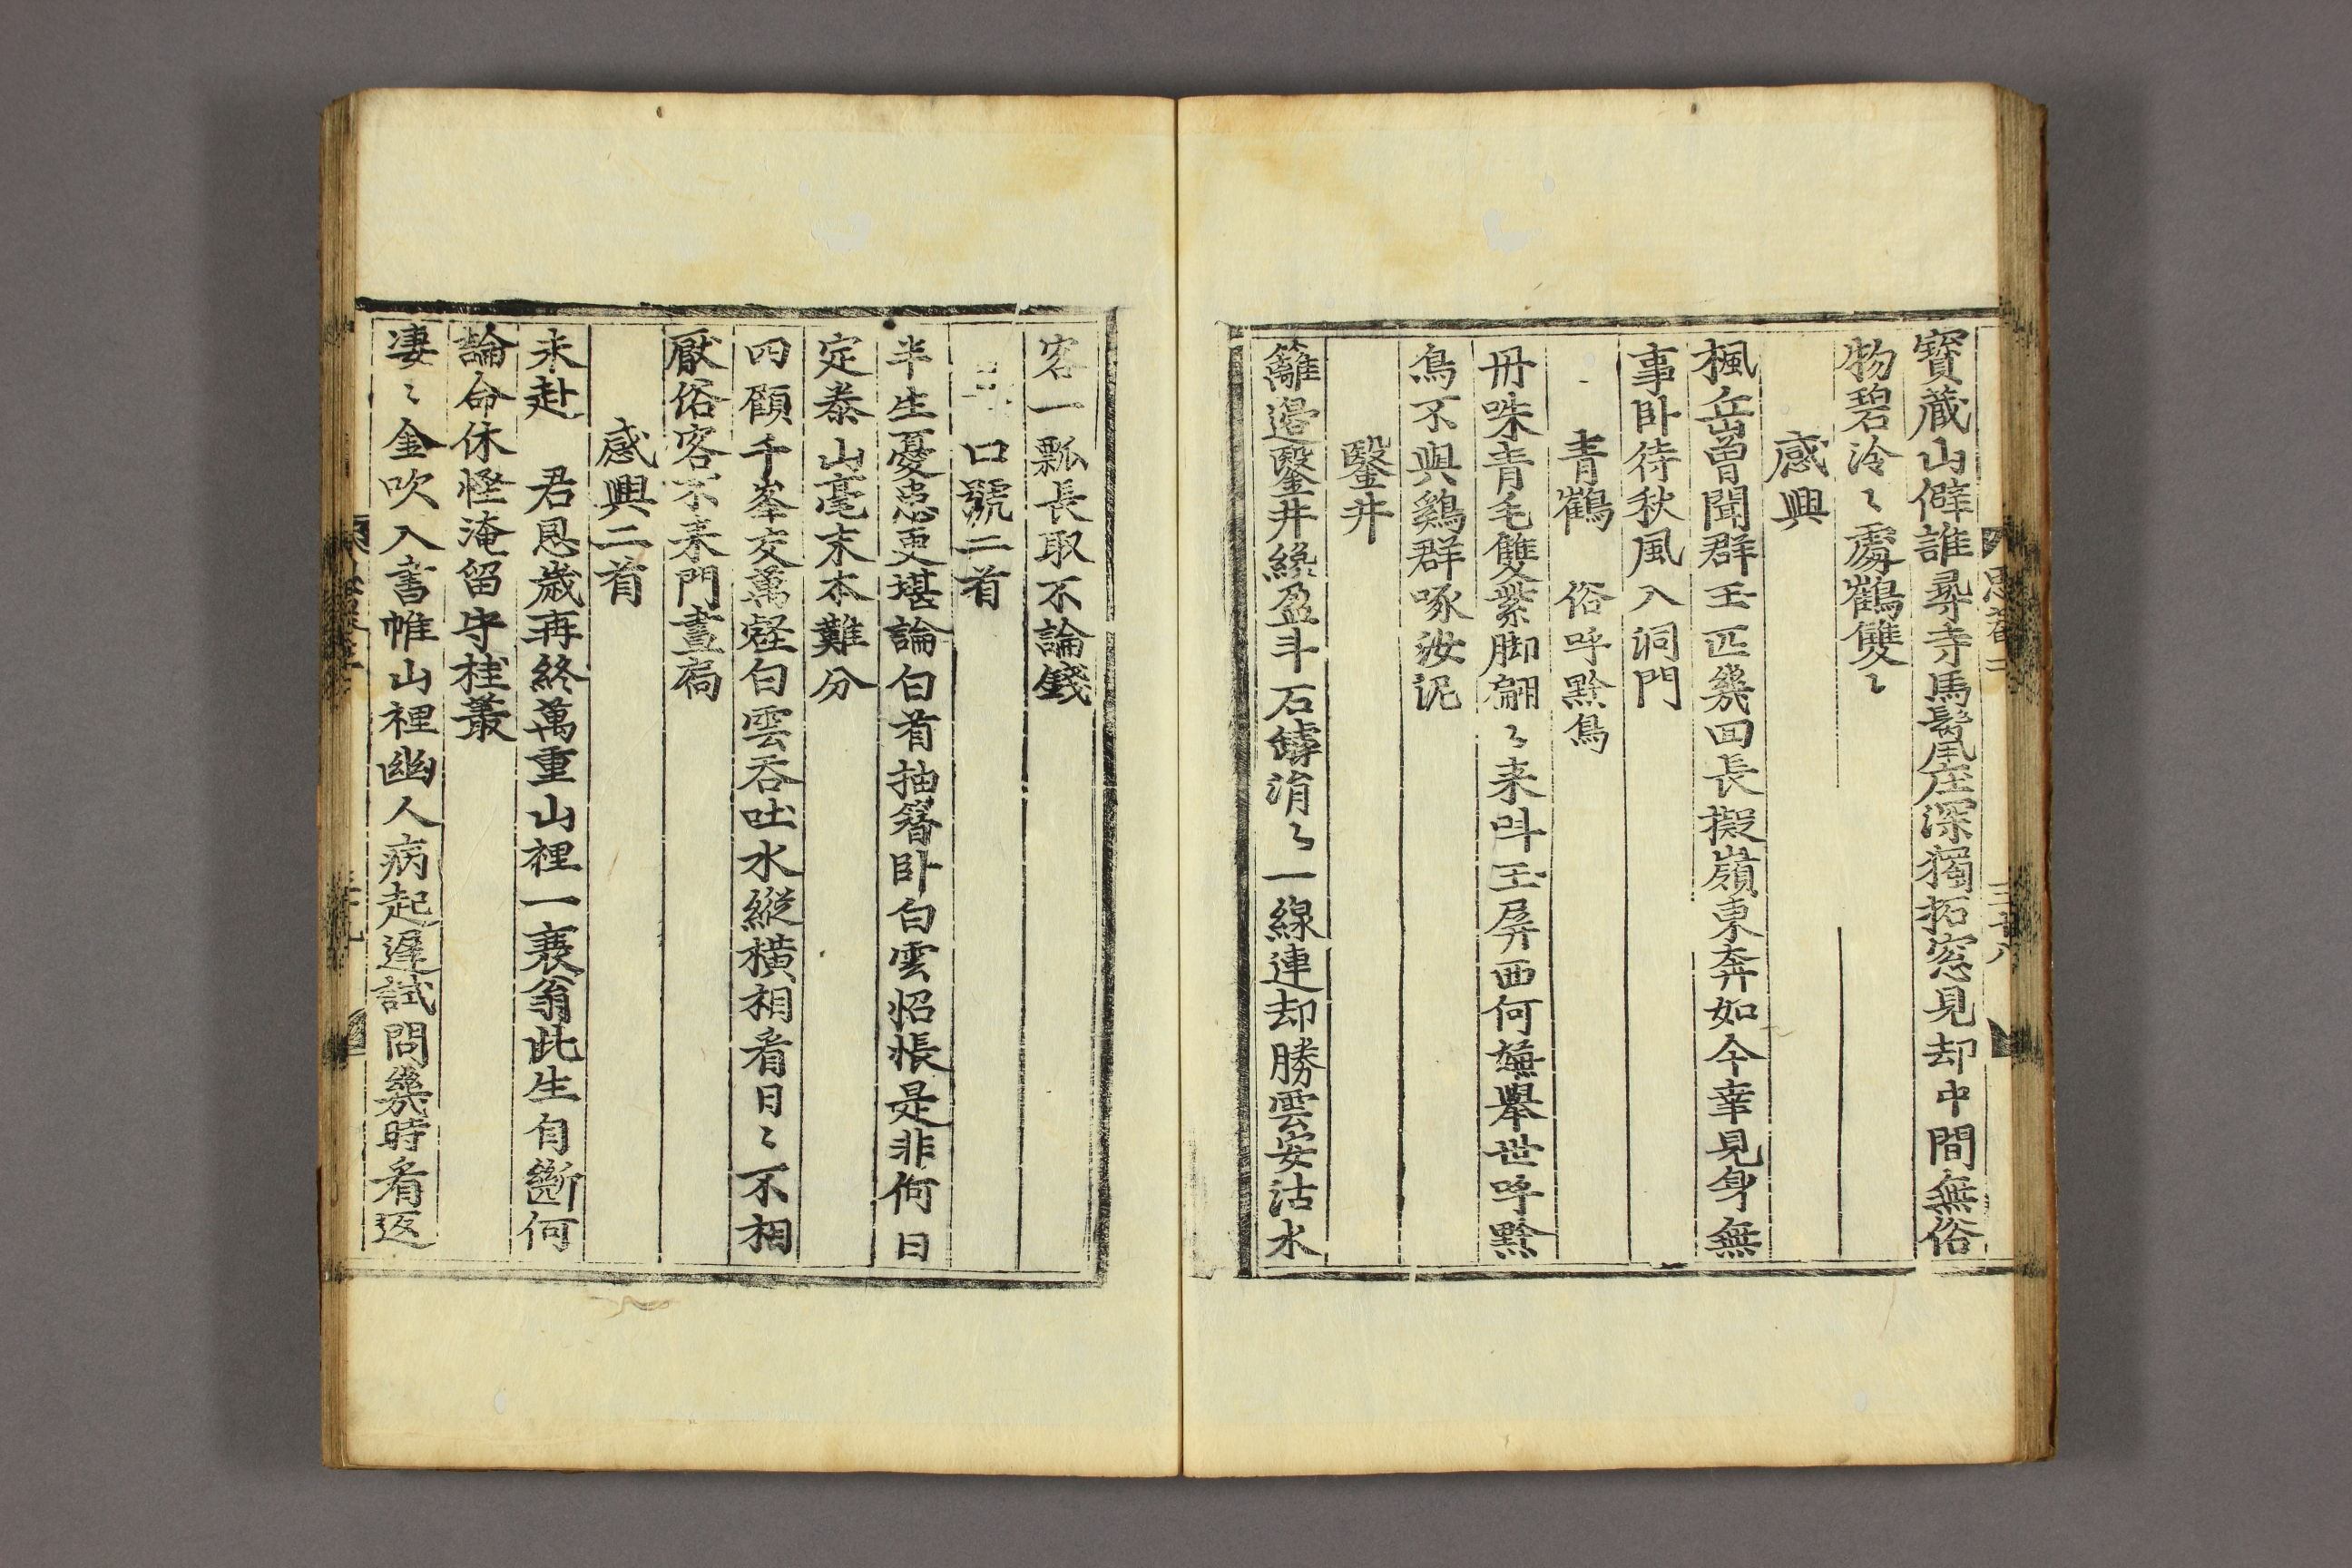 寶藏山僻誰尋寺馬鬣風座深獨拓窓見却中間無俗
物碧泠〻處鶴雙〻
感興
楓岳曽聞群玉匹幾回長擬嶺東奔如今幸見身無
事卧待秋風入洞門
青鶴 俗呼黔鳥
丹咮青毛雙紫脚翩〻来叫玉屏西何嫌舉世呼黔
鳥不與鷄群啄汝泥
鑿井
籬邉鑿井纔盈斗石罅涓〻一線連却勝雲安沽水
客一瓢長取不論錢
口號二首
半生憂患更堪論白首抽簪卧白雲怊悵是非何日
定泰山毫末本難分
四顧千峯交萬壑白雲吞吐水縱橫相看日〻不相
厭俗客不来門晝扃
感興二首
未赴 君恩歲再終萬重山裡一衰翁此生自斷何
論命休怪淹留守桂叢
凄〻金吹入書帷山裡幽人病起遲試問幾時看返